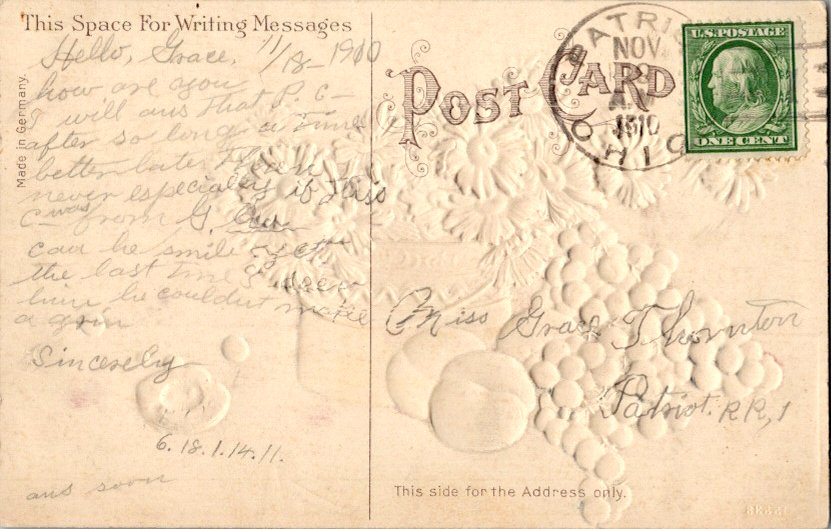 This Space For Writing Messages
Hello, Grace, 11/18-1910
how are you
I will ans that P. C-
after so long a time
better late Then
never especially if this
C- was from G.
can he smile yet
the last time I seen
him he couldnt make
a grin
Sincerely
6.18.1.14.11.
ans soon
Made in Germany.
POST CARD
PATRI
NOV
A.M
1910
OHIO
U.S. POSTAGE
ONE CENT
Miss Grace Thornton
Patriot. R R, 1
This side for the Address only.